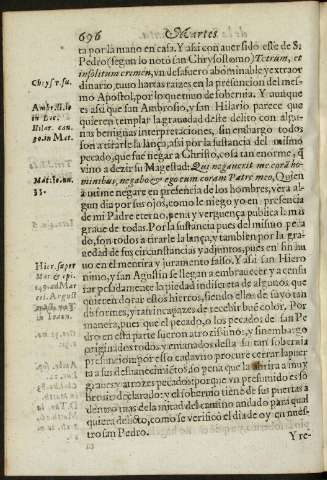 696 Martes
ta por la mano en casa. Y asi con auer sido este de S.
Pedro (segun lo notò san Chrysostomo) Tetrum, et
insolitum crimen, vn desafuero abominable y extraor
dinario, tuuo hartas raizes en la presencion del mes-
mo Apostol, por lo que tuuo de soberuia. Y aunque
es asi que san Ambrosio, y san Hilario parece que
quieren templar la grauedad deste delito con algu-
nas benignas interpretaciones, sin embargo todos
son a tirarle la lança, asi por la sustancia del mismo
pecado, que fue negar a Christo, cosa tan enorme, q̃
vino a dezir su Magestad: Qui negauerit me corã ho-
minibus, negabo & ego eum coram Patre meo, Quien
a mi me negare en presencia de los hombres, vera al-
gun dia por sus ojos, como le niego yo en presencia
de mi Padre eterno, pena y verguença publica la mas
graue de todas. Por la sustancia pues del mismo peca
do, son todos a tirarle la lança, y tambien por la gra-
uedad de sus circunstancias y adjuntos, pues en fin hu
uo en el mentira y juramento falso. Y asi san Hiero
nimo, y san Agustin se llegan a embrauecer y a censu
rar pesadamente la piedad indiscreta de algunos que
quieren dorar estos hierros, siendo ellos de suyo tan
disformes, y tan incapazes de recebir buẽ color. Por
manera, pues que el pecado, o los pecados de san Pe
dro en esta parte fueron atrozisimos, y sin embargo
originados todos, y emanados desta su tan soberuia
presuncion: por esso cada vno procure cerrar la puer
ta a sus desuanecimiẽtos, so pena que la abrira a muy
graues y atrozes pecados: porque vn presumido es so
beruio declarado: y el soberuio tiene de sus puertas a
dentro mas de la mitad del camino andado para qual
quiera delicto, como se verificò el dia de oy en nues-
tro san Pedro.
Y re-
Chrys. v. su.
Ambr. li. 10
in Luc.
Hilar. can.
30. in Mat.
Mat. 10. nu.
33.
Hier. super